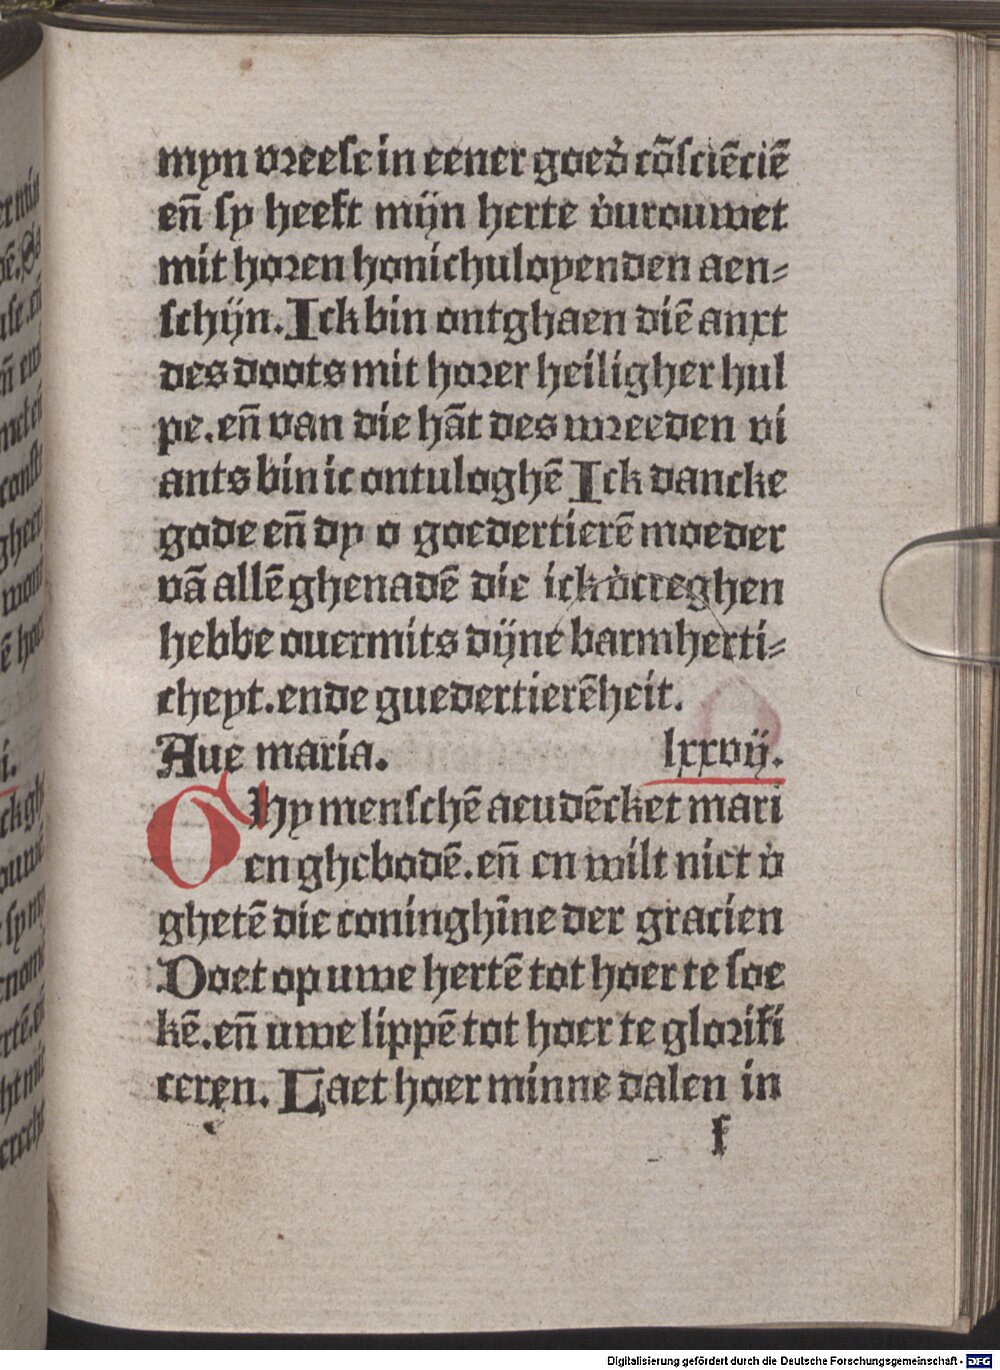 myn vreese in eener goed̉ cōsciēciē
en̄ sy heeft mijn herte v̉urouwet
mit horen honichuloyenden aen⸗
schijn. Ick bin ontghaen diē anxt
des doots mit horer heiligher hul
pe. en̄ van die hāt des wreeden vi
ants bin ic ontuloghē Ick dancke
gode en̄ dy o goedertierē moeder
vā allē ghenadē die ick v̉creghen
hebbe ouermits dijne barmherti⸗
cheyt. ende guedertierēheit.
Aue maria. lxxvij.
O Ghy menschē aeudēcket mari
en ghebodē. en̄ en wilt niet v̉
ghetē die coninghīne der gracien
Doet op uwe hertē tot hoer te soe
kē. en̄ uwe lippē tot hoer te glorifi
ceren. Laet hoer minne dalen in
f
Digitalisierung gefördert durch die Deutsche Forschungsgemeinschaft - DFG